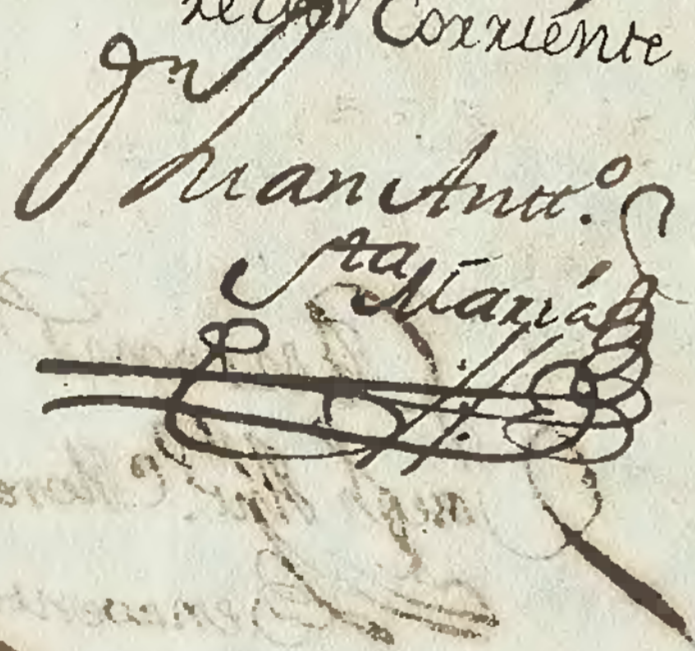 Corriente
Dn
Juan Antt.º
Sta Maria